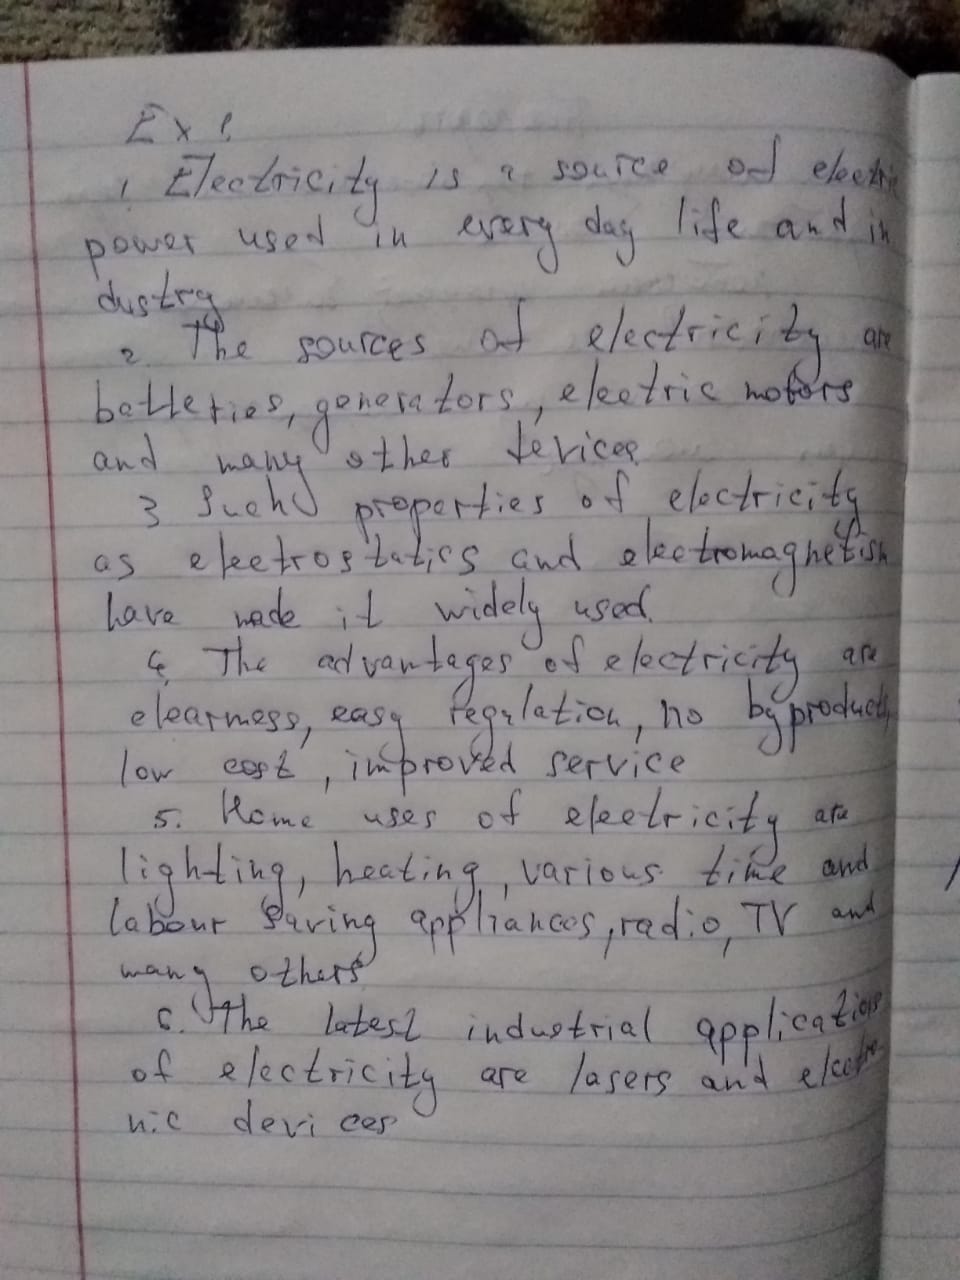 Ex 1.
1 Electricity is a source of electric
power used in every day life and in
dustry
2 The sources of electricity are
batteries, generators, electric motors
and many other devices
3 Such properties of electricity
as electrostatics and electromagnetism
have made it widely used.
4 The advantages of electricity are
clearness, easy regulation, no byproducts,
low cost, improved service
5. Home uses of electricity are
lighting, heating, various time and
labour saving appliances, radio, TV and
many others
6. The latest industrial applications
of electricity are lasers and electro
nic devices